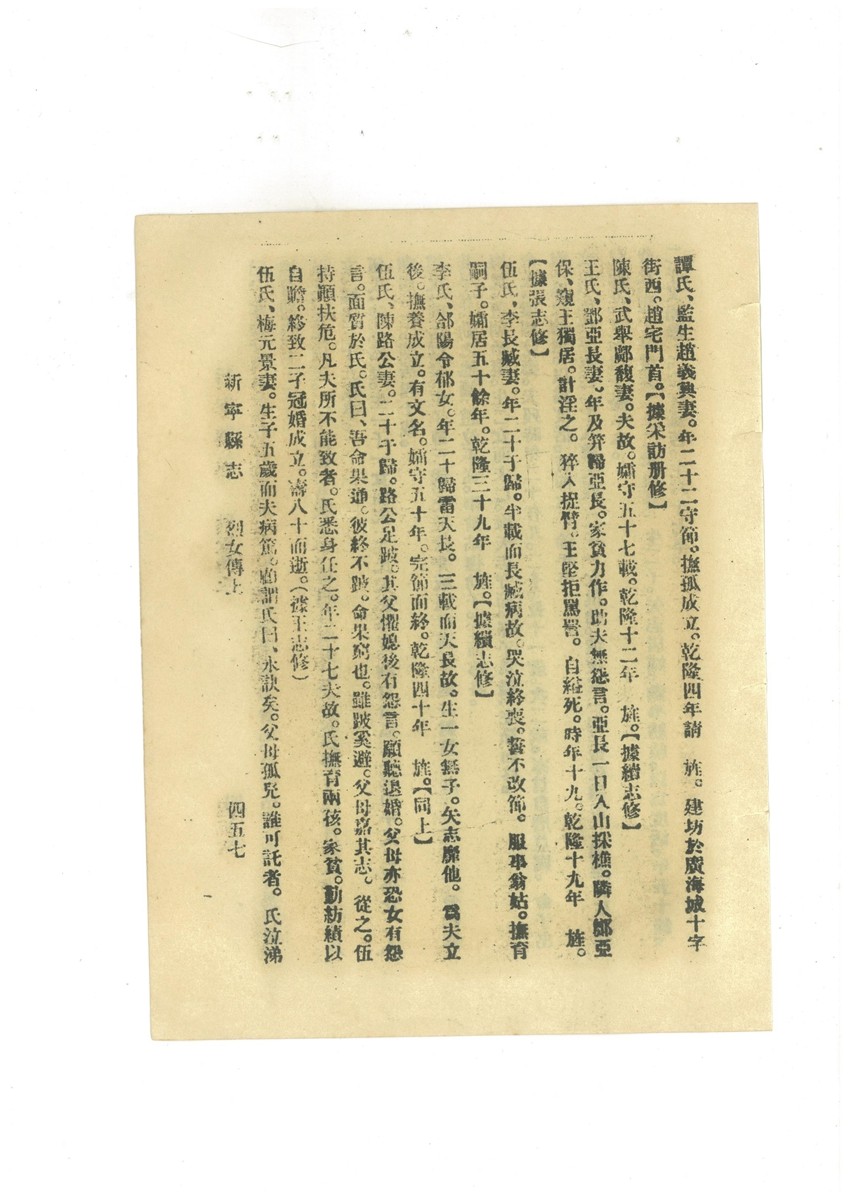 譚氏、監生趙義興妻。年二十二守節。撫孤成立。乾隆四年請　旌。建坊於廣海城十字
街西。趙宅門首。【據采訪册修】
陳氏、武舉鄺馥妻。夫故。孀守五十七載。乾隆十二年　旌。【據續志修】
王氏、鄧亞長妻。年及笄歸亞長。家貧力作。助夫無怨言。亞長一日入山採樵。隣人鄭亞
保、窺王獨居。計淫之。猝入捉臂。王堅拒罵詈。自縊死。時年十九。乾隆十九年　旌。
【據張志修】
伍氏、李長陞妻。年二十于歸。半載而長陞病故。哭泣終喪。誓不改節。服事翁姑。撫育
嗣子。孀居五十餘年。乾隆三十九年　旌。【據續志修】
李氏、郃陽令郁女。年二十歸雷天長。三載而天長故。生一女無子。矢志靡他。爲夫立
後。撫養成立。有文名。孀守五十年。完節而終。乾隆四十年　旌。【同上】
伍氏、陳路公妻。二十于歸。路公足跛。其父懼媳後有怨言。願聽退婚。父母亦恐女有怨
言。面質於氏。氏曰、吾命果通。彼終不跛。命果窮也。雖跛奚避。父母嘉其志。從之。伍
持顚扶危。凡夫所不能致者。氏悉身任之。年二十七夫故。氏撫育兩孩。家貧。勤紡績以
自贍。終致二子冠婚成立。壽八十而逝。（據王志修）
伍氏、梅元景妻。生子五歲而夫病篤。顧謂氏曰、永訣矣。父母孤兒。誰可託者。氏泣涕
新寧縣志　烈女傳上　四五七